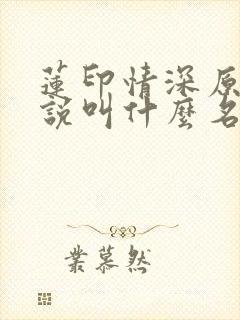 蓮印情深原
說叫什麼名
業慕然